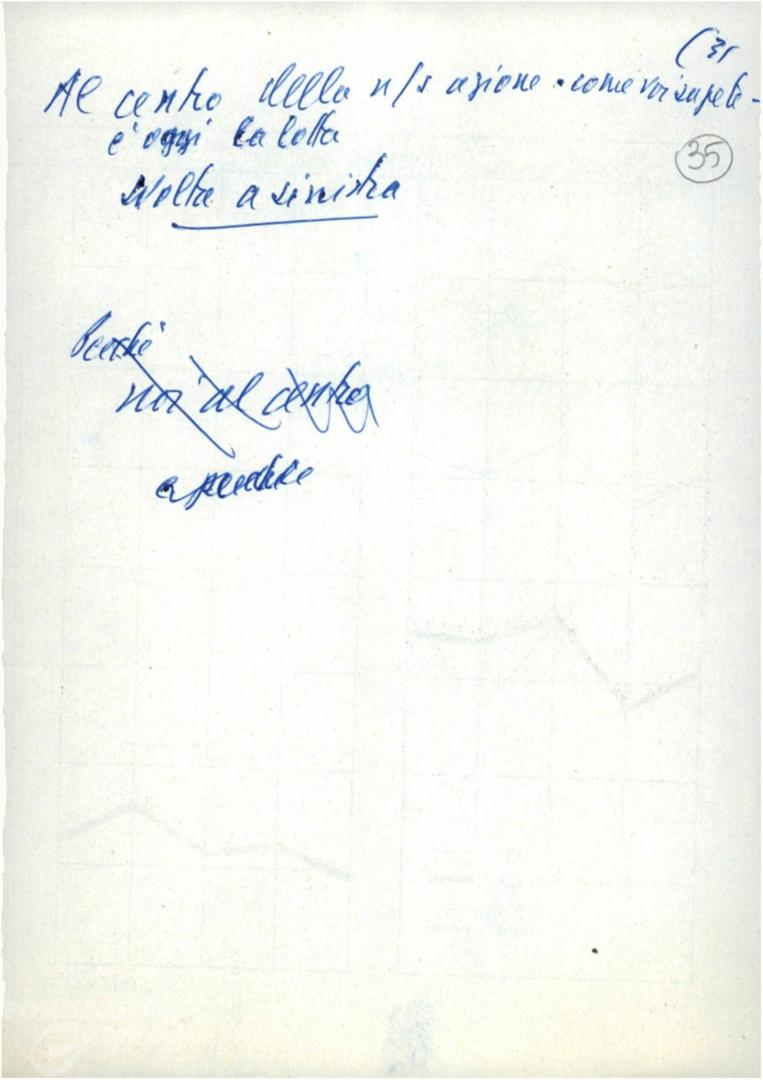 (31
Al centro della n/s azione - come voi sapete -
è oggi la lotta
35
svolta a sinistra
Perché
noi al centro
e perché